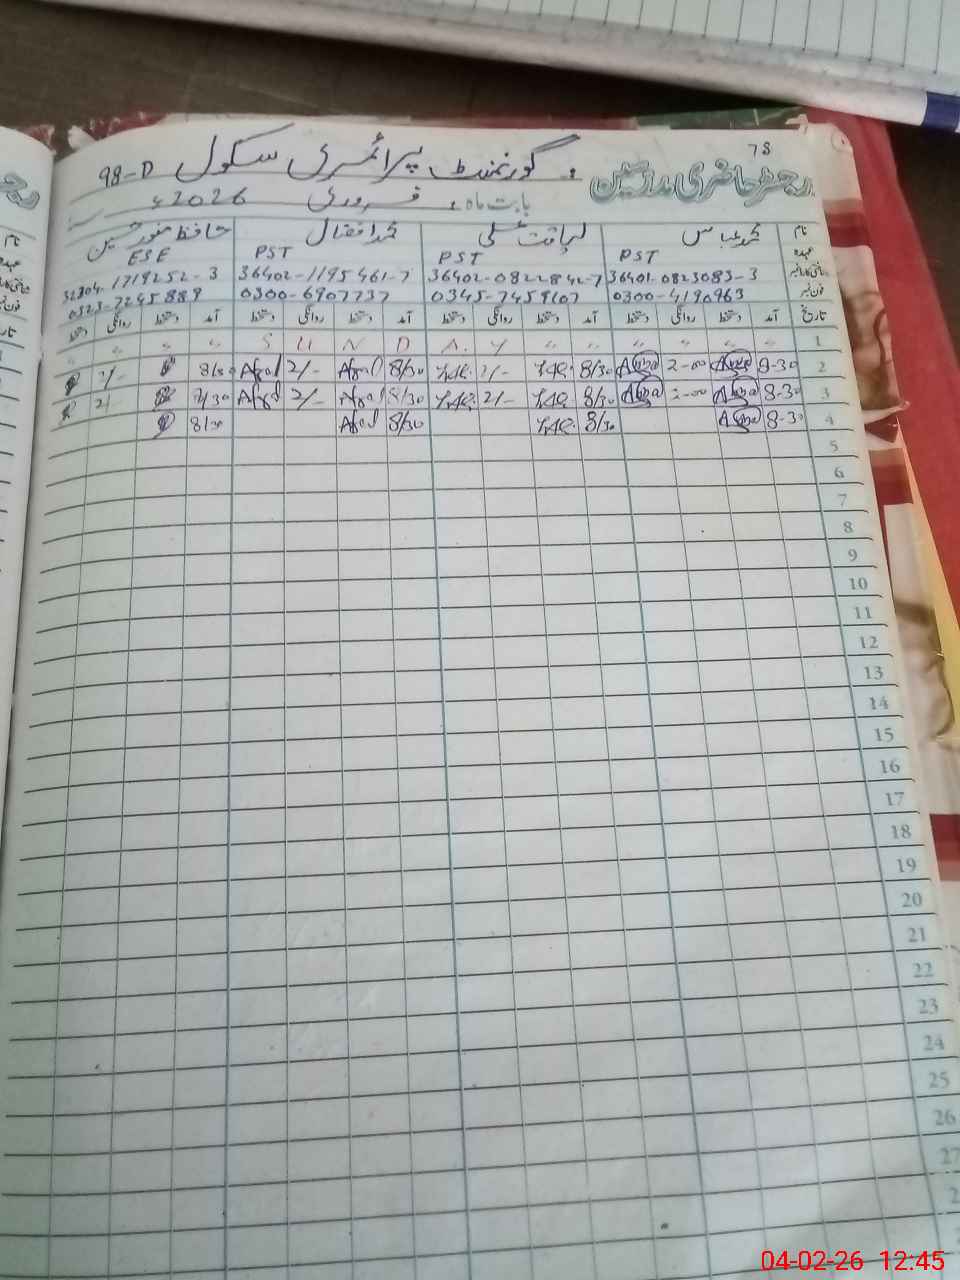 78
رجسٹر حاضری مدرسین گورنمنٹ پرائمری سکول 98-D
بابت ماہ فروری 2026ء
نام محمد عباس لیاقت علی محمد افضال حافظ منور حسین
عہدہ PST PST PST ESE
شناختی کارڈ نمبر 36401-0823083-3 36402-0822842-7 36402-1195461-7 32304-1719252-3
فون نمبر 0300-4190963 0345-7459107 0300-6907737 0323-7245889
تاریخ آمد دستخط روانگی دستخط آمد دستخط روانگی دستخط آمد دستخط روانگی دستخط آمد دستخط روانگی دستخط
1 S U N D A Y
2 8-30 2-00 8/30 2/- 8/30 Afzal 2/- Afzal 8/30 2/-
3 8-30 2-00 8/30 2/- 8/30 Afzal 2/- Afzal 8/30 2/-
4 8-30 8/30 8/30 Afzal 8/30
5
6
7
8
9
10
11
12
13
14
15
16
17
18
19
20
21
22
23
24
25
26
27
04-02-26 12:45